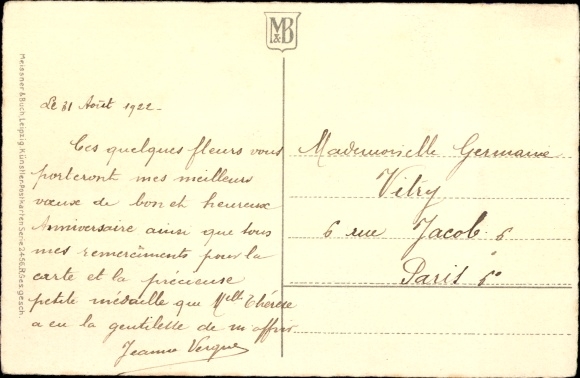 M&B
Meissner & Buch, Leipzig, Künstler-Postkarten Serie 2456, R. Ges. gesch.
Le 31 Août 1922
Ces quelques fleurs vous
porteront mes meilleurs
vœux de bon et heureux
Anniversaire ainsi que tous
mes remerciments pour la
carte et la précieuse
petite médaille que Melle Thérèse
a eu la gentilesse de m'offrir
Jeanne Vergne
Mademoiselle Germaine
Vitry
6 rue Jacob 6
Paris 6e